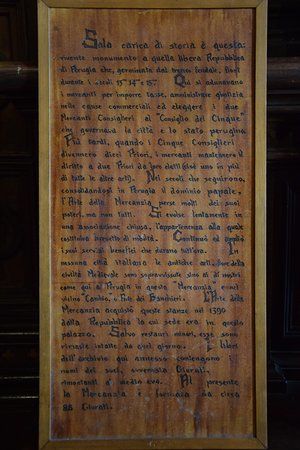 Sala carica di storia è questa:
vivente monumento a quella libera Repubblica
di Perugia che, germinata dal tronco feudale, fiorì
durante i secoli 13° 14° e 15°. Qui si adunavano
i mercanti per imporre tasse, amministrare giustizia
nelle cause commerciali ed eleggere i due
Mercanti Consiglieri al "Consiglio dei Cinque"
che governava la città e lo stato perugino.
Più tardi, quando i Cinque Consiglieri
divennero dieci Priori, i mercanti mantennero il
diritto a due Priori tra loro eletti (ciò uno in più
di tutte le altre arti). Nei secoli che seguirono,
consolidandosi in Perugia il dominio papale,
l'Arte della Mercanzia perse molti dei suoi
poteri, ma non tutti. Si evolse lentamente in
una associazione chiusa, l'appartenenza alla quale
costituiva brevetto di nobiltà. Continuò ed ampliò
i suoi servizi benefici che durano tutt'ora. In
nessuna città italiana le antiche arti, fiore della
civiltà Medievale sono sopravvissute sino ai dì nostri
come qui al Perugia in questa "Mercanzia" e nel
vicino Cambio, o Arte dei Banchieri. L'Arte della
Mercanzia acquistò queste stanze nel 1390
dalla Repubblica la cui sede era in questo
palazzo. Salvo restauri minori, esse sono
rimaste intatte da quel giorno. I libri
dell'archivio qui annesso contengono i
nomi dei suoi, ovvero Giurati,
rimontanti al medio evo. Al presente
la Mercanzia è formata da circa
88 Giurati.